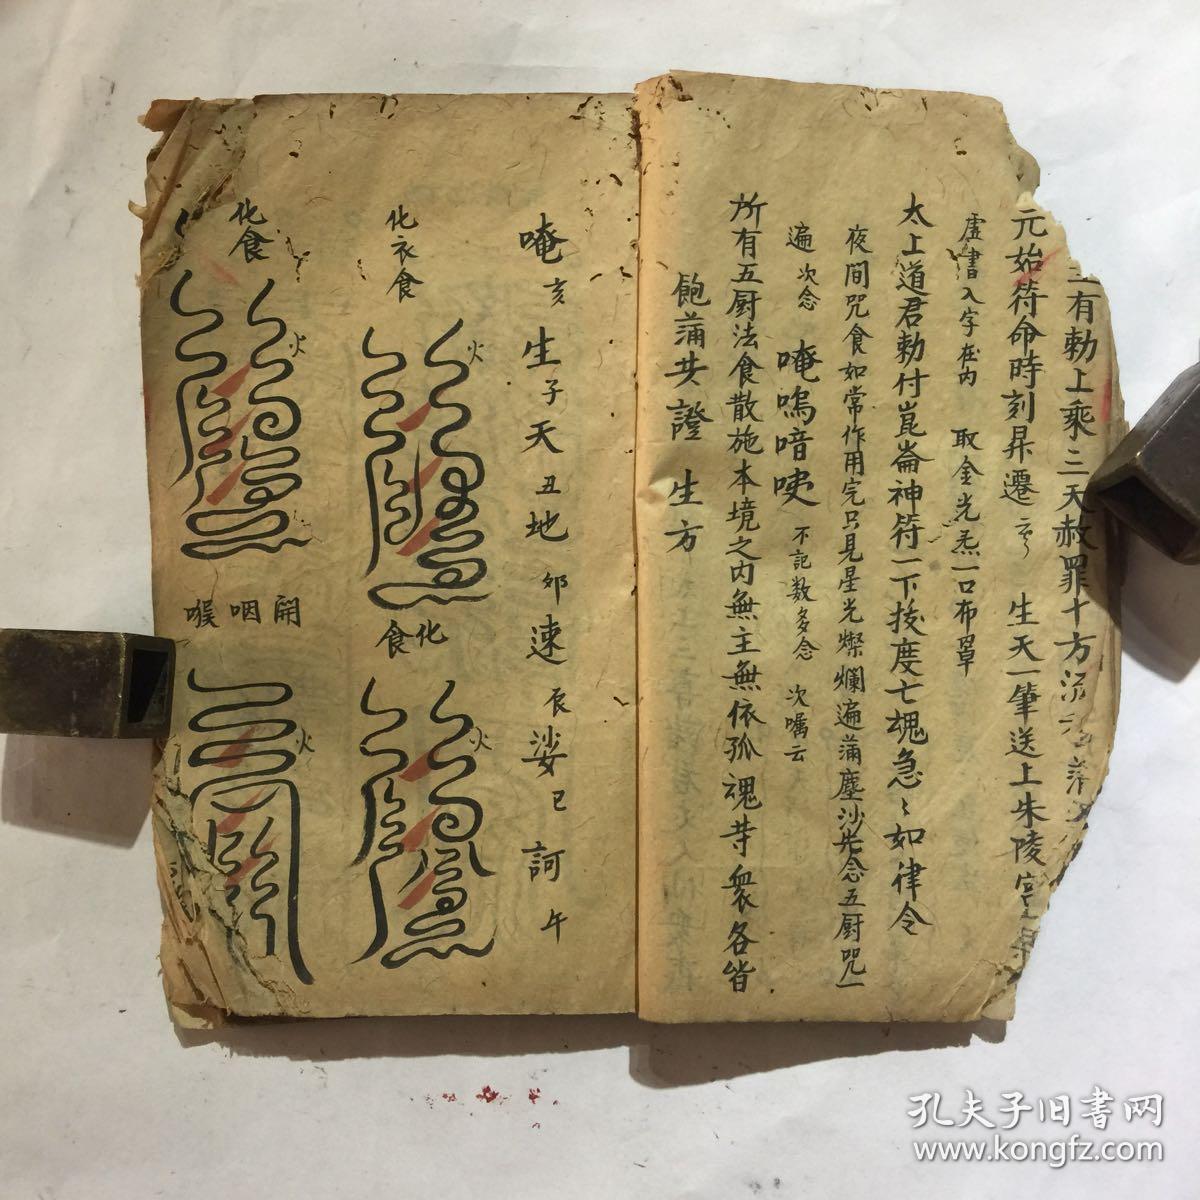 有勅上乘三天赦罪十方
元始符命時刻昇遷 生天一筆送上朱陵宮
虛書入字在內 取金光炁一口布罩
太上道君勅付崑崙神符一下拔度亡魂急〻如律令
夜間咒食如常作用完只見星光燦爛遍蒲塵沙先念五厨咒一
遍 次念 唵嗚喑㖿 不記数多念 次嘱云
所有五厨法食散施本境之内無主無依孤魂等衆各皆
飽蒲共證 生方
唵 亥 生 子 天 丑 地 卯 速 辰 娑 巳 訶 午
化衣食
火
化食
火
化食
火
開咽喉
火
孔夫子旧書网
www.kongfz.com